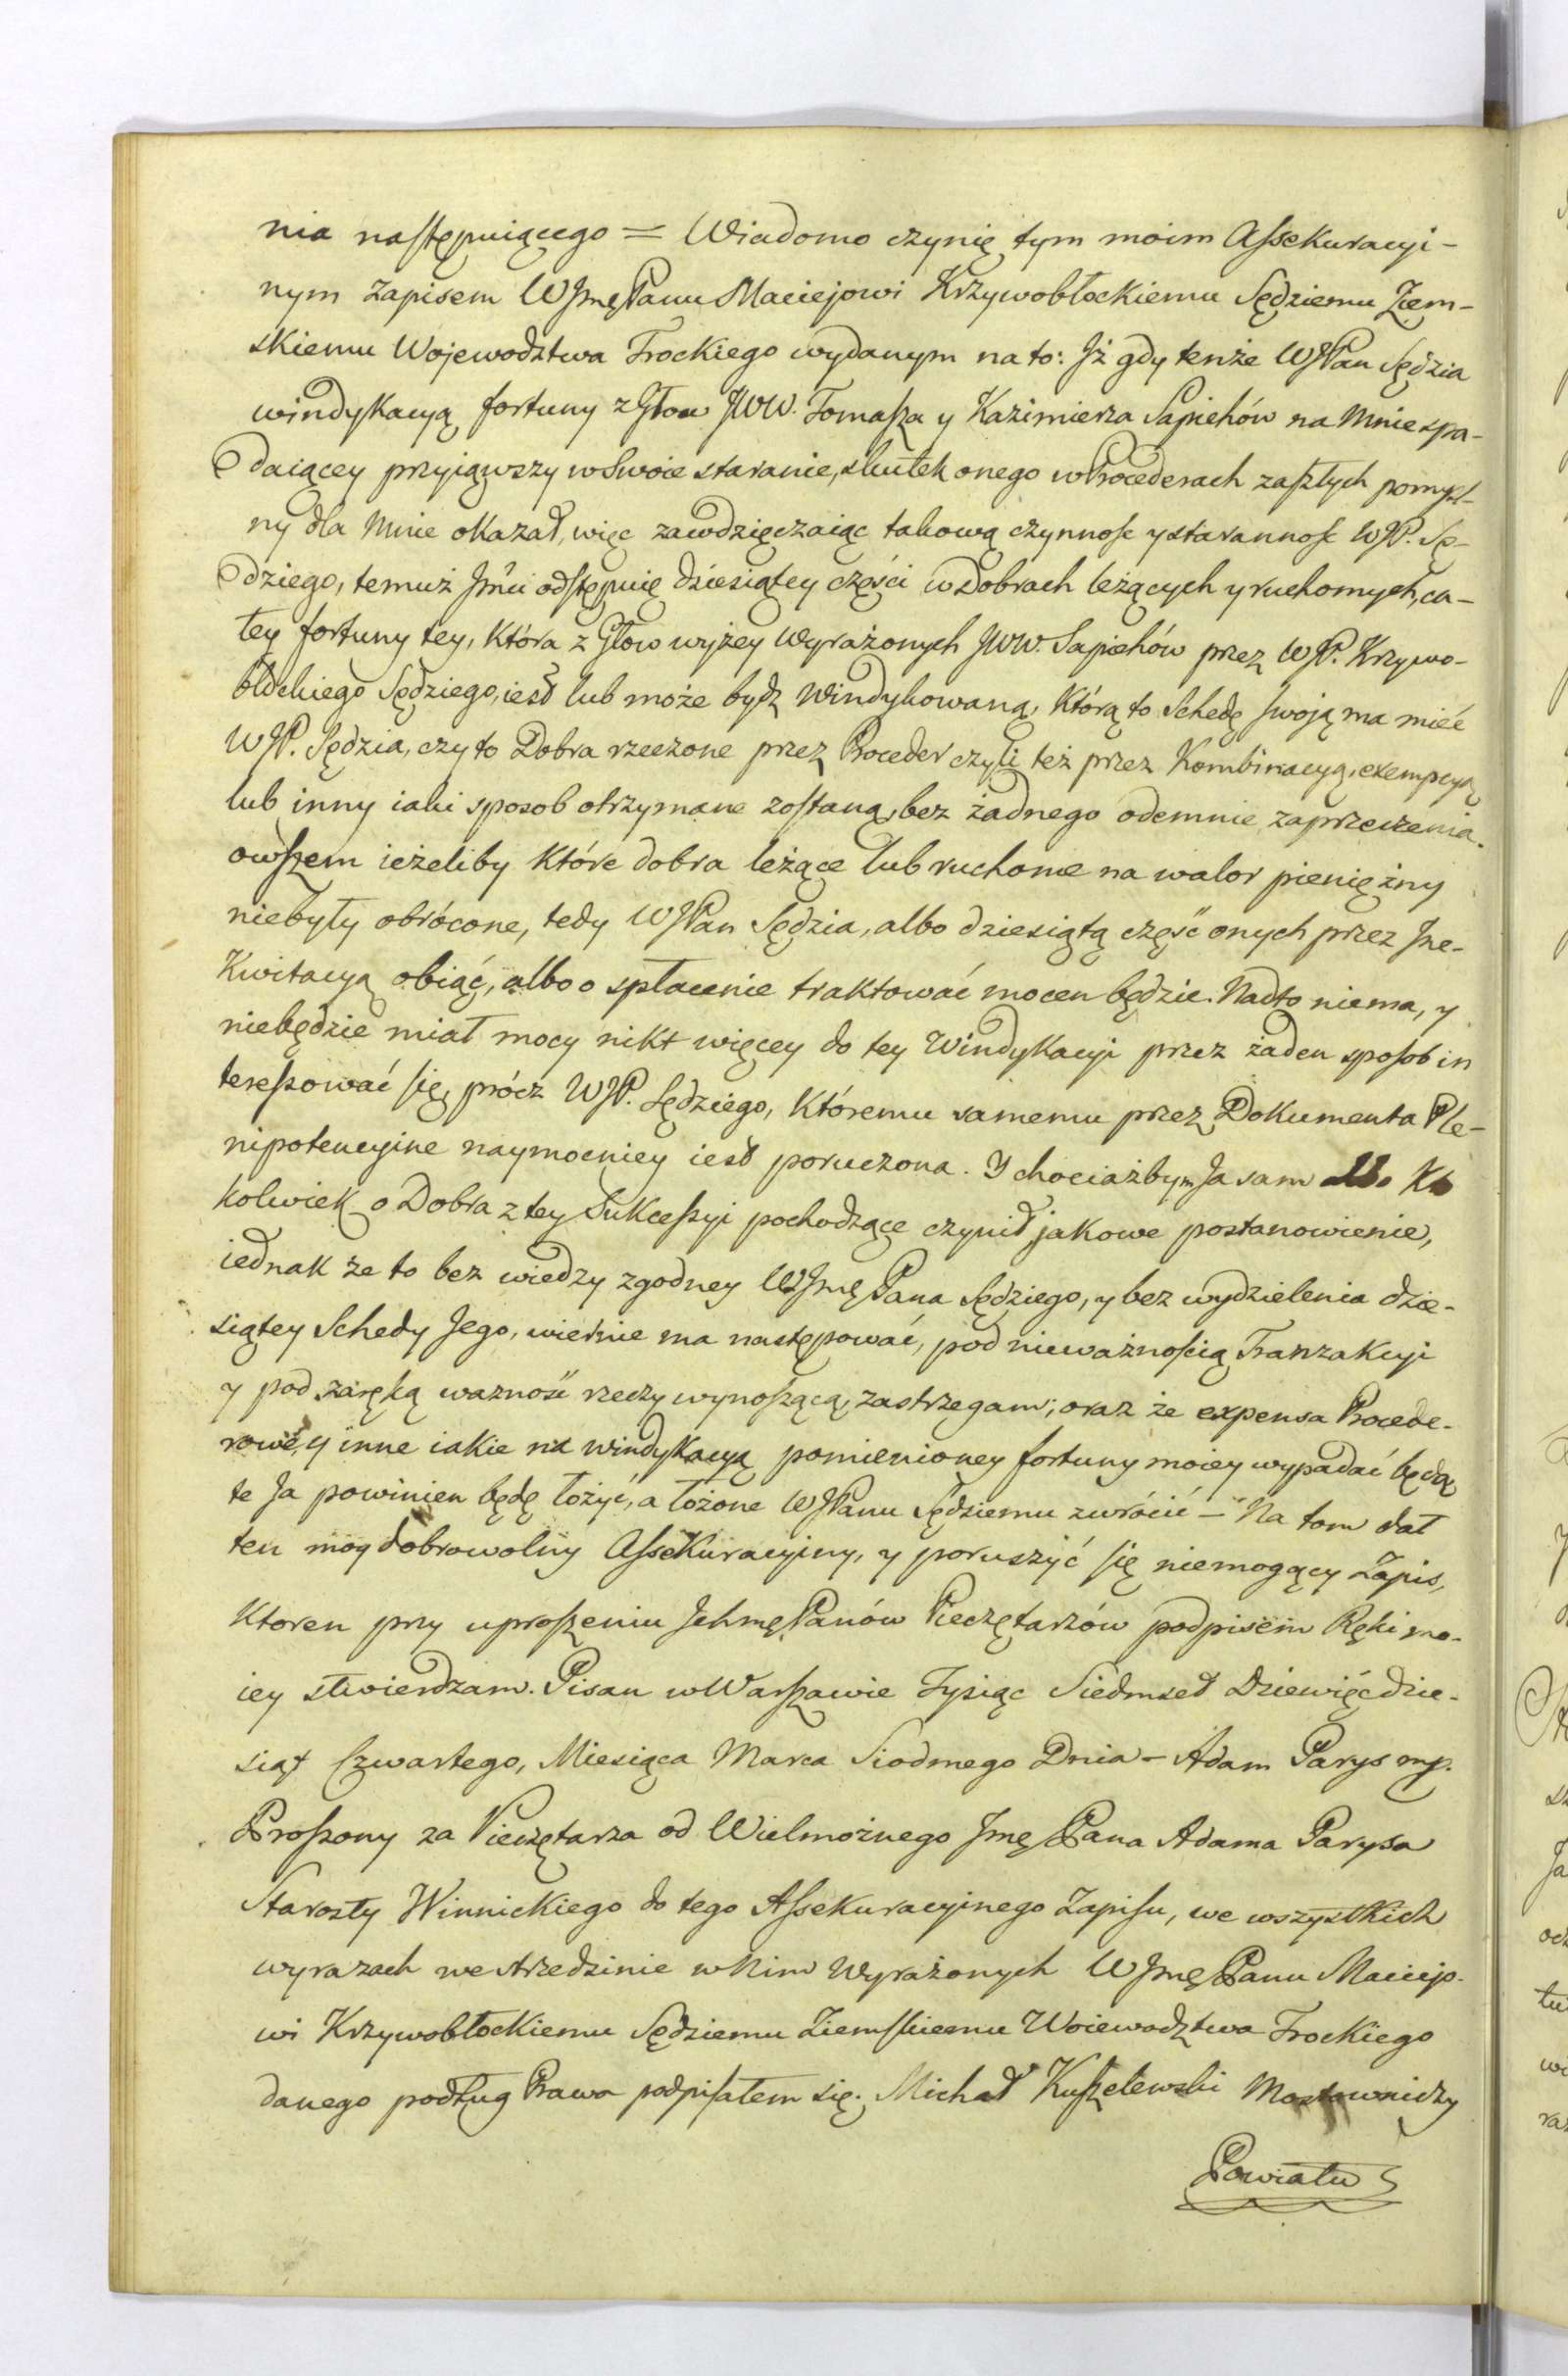 nia następuiącego = Wiadomo czynię tym moim Assekuracyi-
nym zapisem WJmęPanu Maciejowi Krzywobłockiemu Sędziemu Ziem-
skiemu Wojewodztwa Trockiego wydanym na to: Jż gdy tenże WJPan Sędzia
windykacyą fortuny z Głow JWW. Tomasza y Kazimierza Sapiehów na Mnie spa-
daiącey przyiąwszy w Swoie staranie, skutek onego w Procederach zaszłych pomysl-
ny dla Mnie okazał, więc zawdzięczaiąc takową czynnosc y starannosc WJP. Sę-
dziego, temuż Jmci odstępuię dziesiątey części w Dobrach leżących y ruchomych, ca-
łey fortuny tey, Która z Głow wyżey wyrażonych JWW. Sapiehów przez WJP. Krzywo-
błockiego Sędziego, iest lub może bydz windykowaną, Którą to Schedę swoją ma mieć
WJP. Sędzia, czy to Dobra rzeczone przez Proceder czyli też przez Kombinacyą, exempcyą
lub inny iaki sposob otrzymane zostaną, bez żadnego odemnie zaprzeczenia.
owszem ieżeliby Które dobra leżące lub ruchome na walor pieniężny
niebyły obrócone, tedy WJPan Sędzia, albo dziesiątą część onych przez Jne-
Kwitacyą obiąć, albo o spłacenie traktować mocen będzie. Nadto niema, y
niebędzie miał mocy nikt więcey do tey Windykacyi przez żaden sposob in
teressować się, prócz WJP. Sędziego, Któremu samemu przez Dokumenta Ple-
nipotencyine naymocniey iest poruczona. Y chociażbym Ja sam
kolwiek o Dobra z tey Sukcessyi pochodzące czynił jakowe postanowienie,
iednak że to bez wiedzy zgodney WJmę Pana Sędziego, y bez wydzielenia dzie-
siątey Schedy Jego, wiernie ma następować, pod nieważnością Tranzakcyi
y pod zaręką ważność rzeczy wynoszącą, zastrzegam; oraz że expensa Procede-
rowe, y inne iakie na windykacyą pomienioney fortuny moiey wypadać będą
te Ja powinien będę łożyć, a łożone WJPanu Sędziemu zwrócić – Na tom dał
ten moy dobrowolny Assekuracyiny, y poruszyć się niemogący Zapis,
Ktoren przy uproszeniu JchmęPanów Pieczętarzów podpisem Ręki mo-
iey stwierdzam. Pisan w Warszawie Tysiąc Siedmset Dziewięćdzie-
siąt Czwartego, Miesiąca Marca Siodmego Dnia – Adam Parys mp.
Proszony za Pieczętarza od Wielmożnego Jmę Pana Adama Parysa
Starosty Winnickiego do tego Assekuracyinego Zapisu, we wszystkich
wyrazach we srzedzinie w Nim Wyrażonych WJmę Panu Maciejo-
wi Krzywobłockiemu Sędziemu Ziemskiemu Woiewodztwa Trockiego
danego podług Prawa podpisałem się. Michał Kuszelewski Mostowniczy
Powiatu